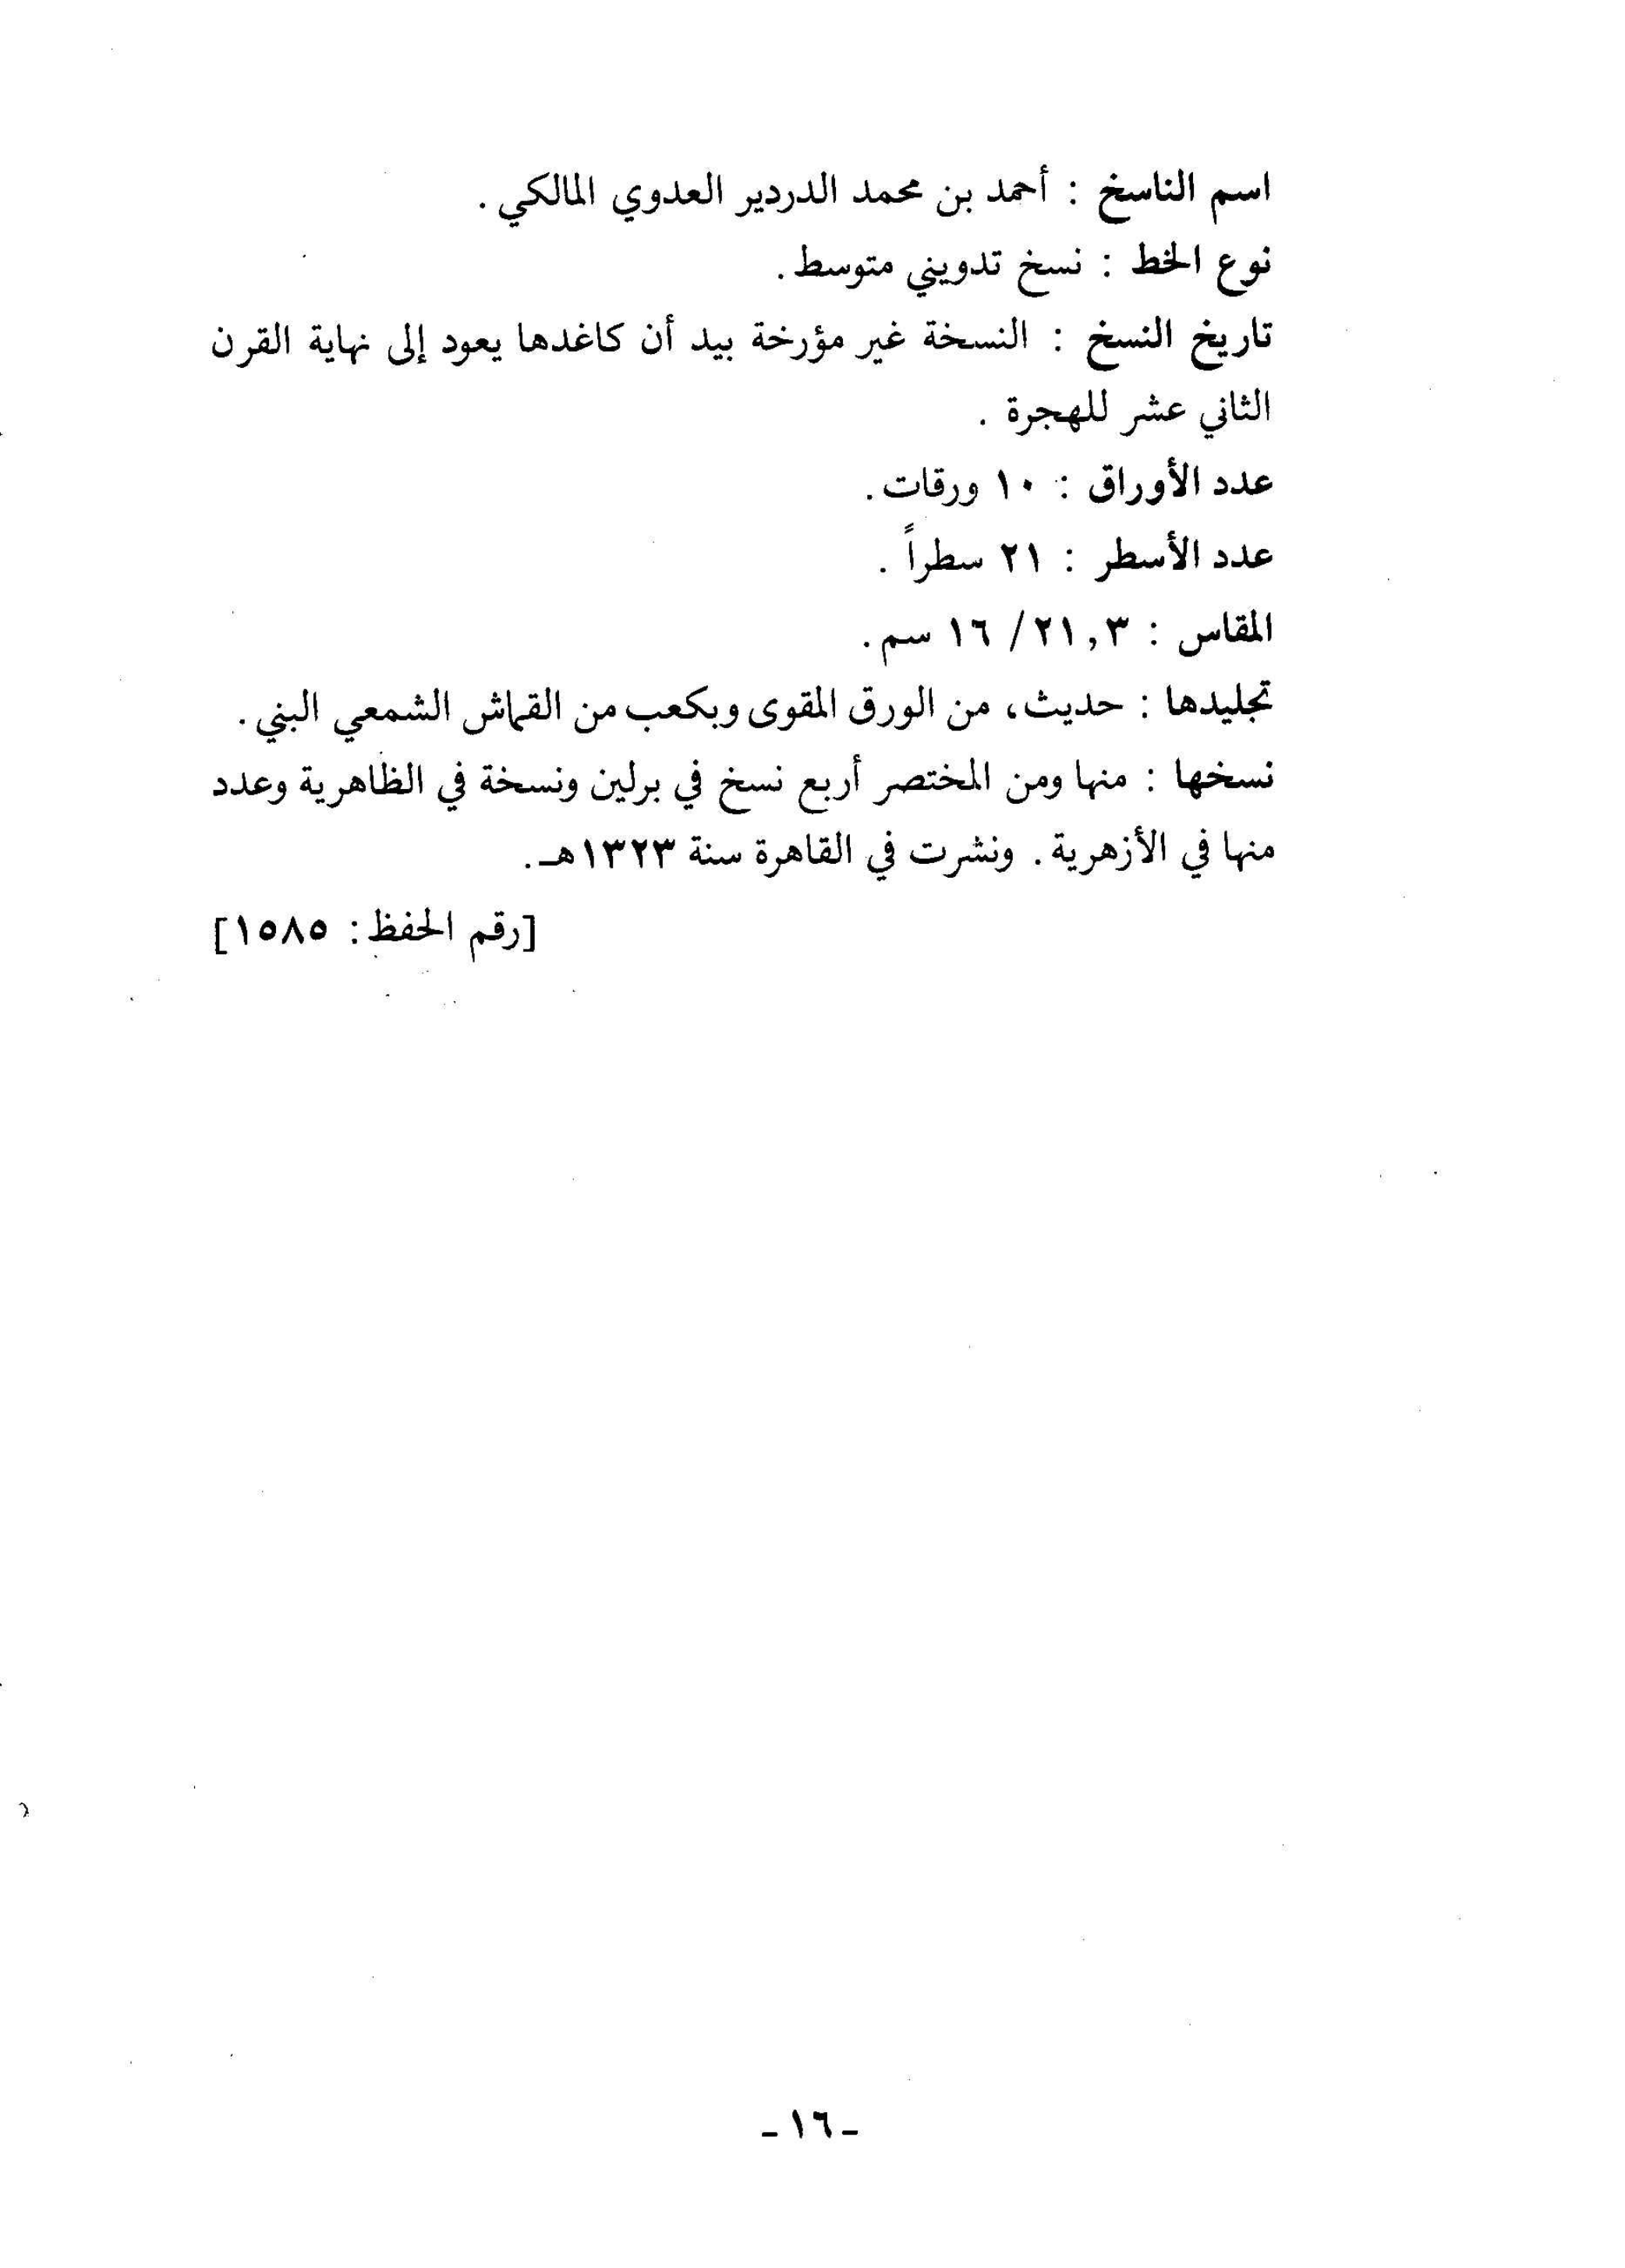 اسم الناسخ : أحمد بن محمد الدردير العدوي المالكي .
نوع الخط : نسخ تدويني متوسط .
تاريخ النسخ : النسخة غير مؤرخة بيد أن كاغدها يعود إلى نهاية القرن
الثاني عشر للهجرة .
عدد الأوراق : ١٠ ورقات .
عدد الأسطر : ٢١ سطراً .
المقاس : ٢١,٣ / ١٦ سم .
تجليدها : حديث، من الورق المقوى وبكعب من القماش الشمعي البني .
نسخها : منها ومن المختصر أربع نسخ في برلين ونسخة في الظاهرية وعدد
منها في الأزهرية . ونشرت في القاهرة سنة ١٣٢٣هـ .
[رقم الحفظ : ١٥٨٥]
- ١٦ -